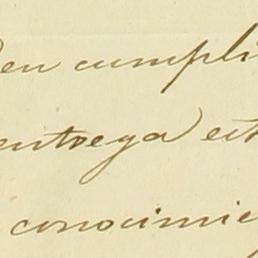 en cumpli
entrega est
conocimie